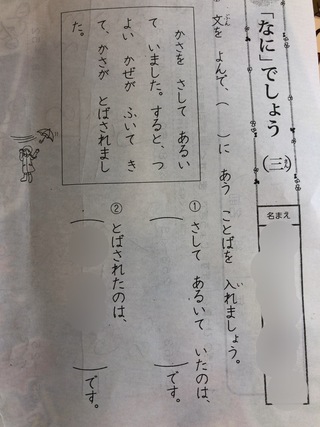 「なに」でしょう (三)
さん
名まえ
文を よんで、( )に あう ことばを 入れましょう。
ぶん
い
かさを さして あるい
て いました。すると、つ
よい かぜが ふいて き
て、かさが とばされまし
た。
① さして あるいて いたのは、
( )です。
② とばされたのは、
( )です。